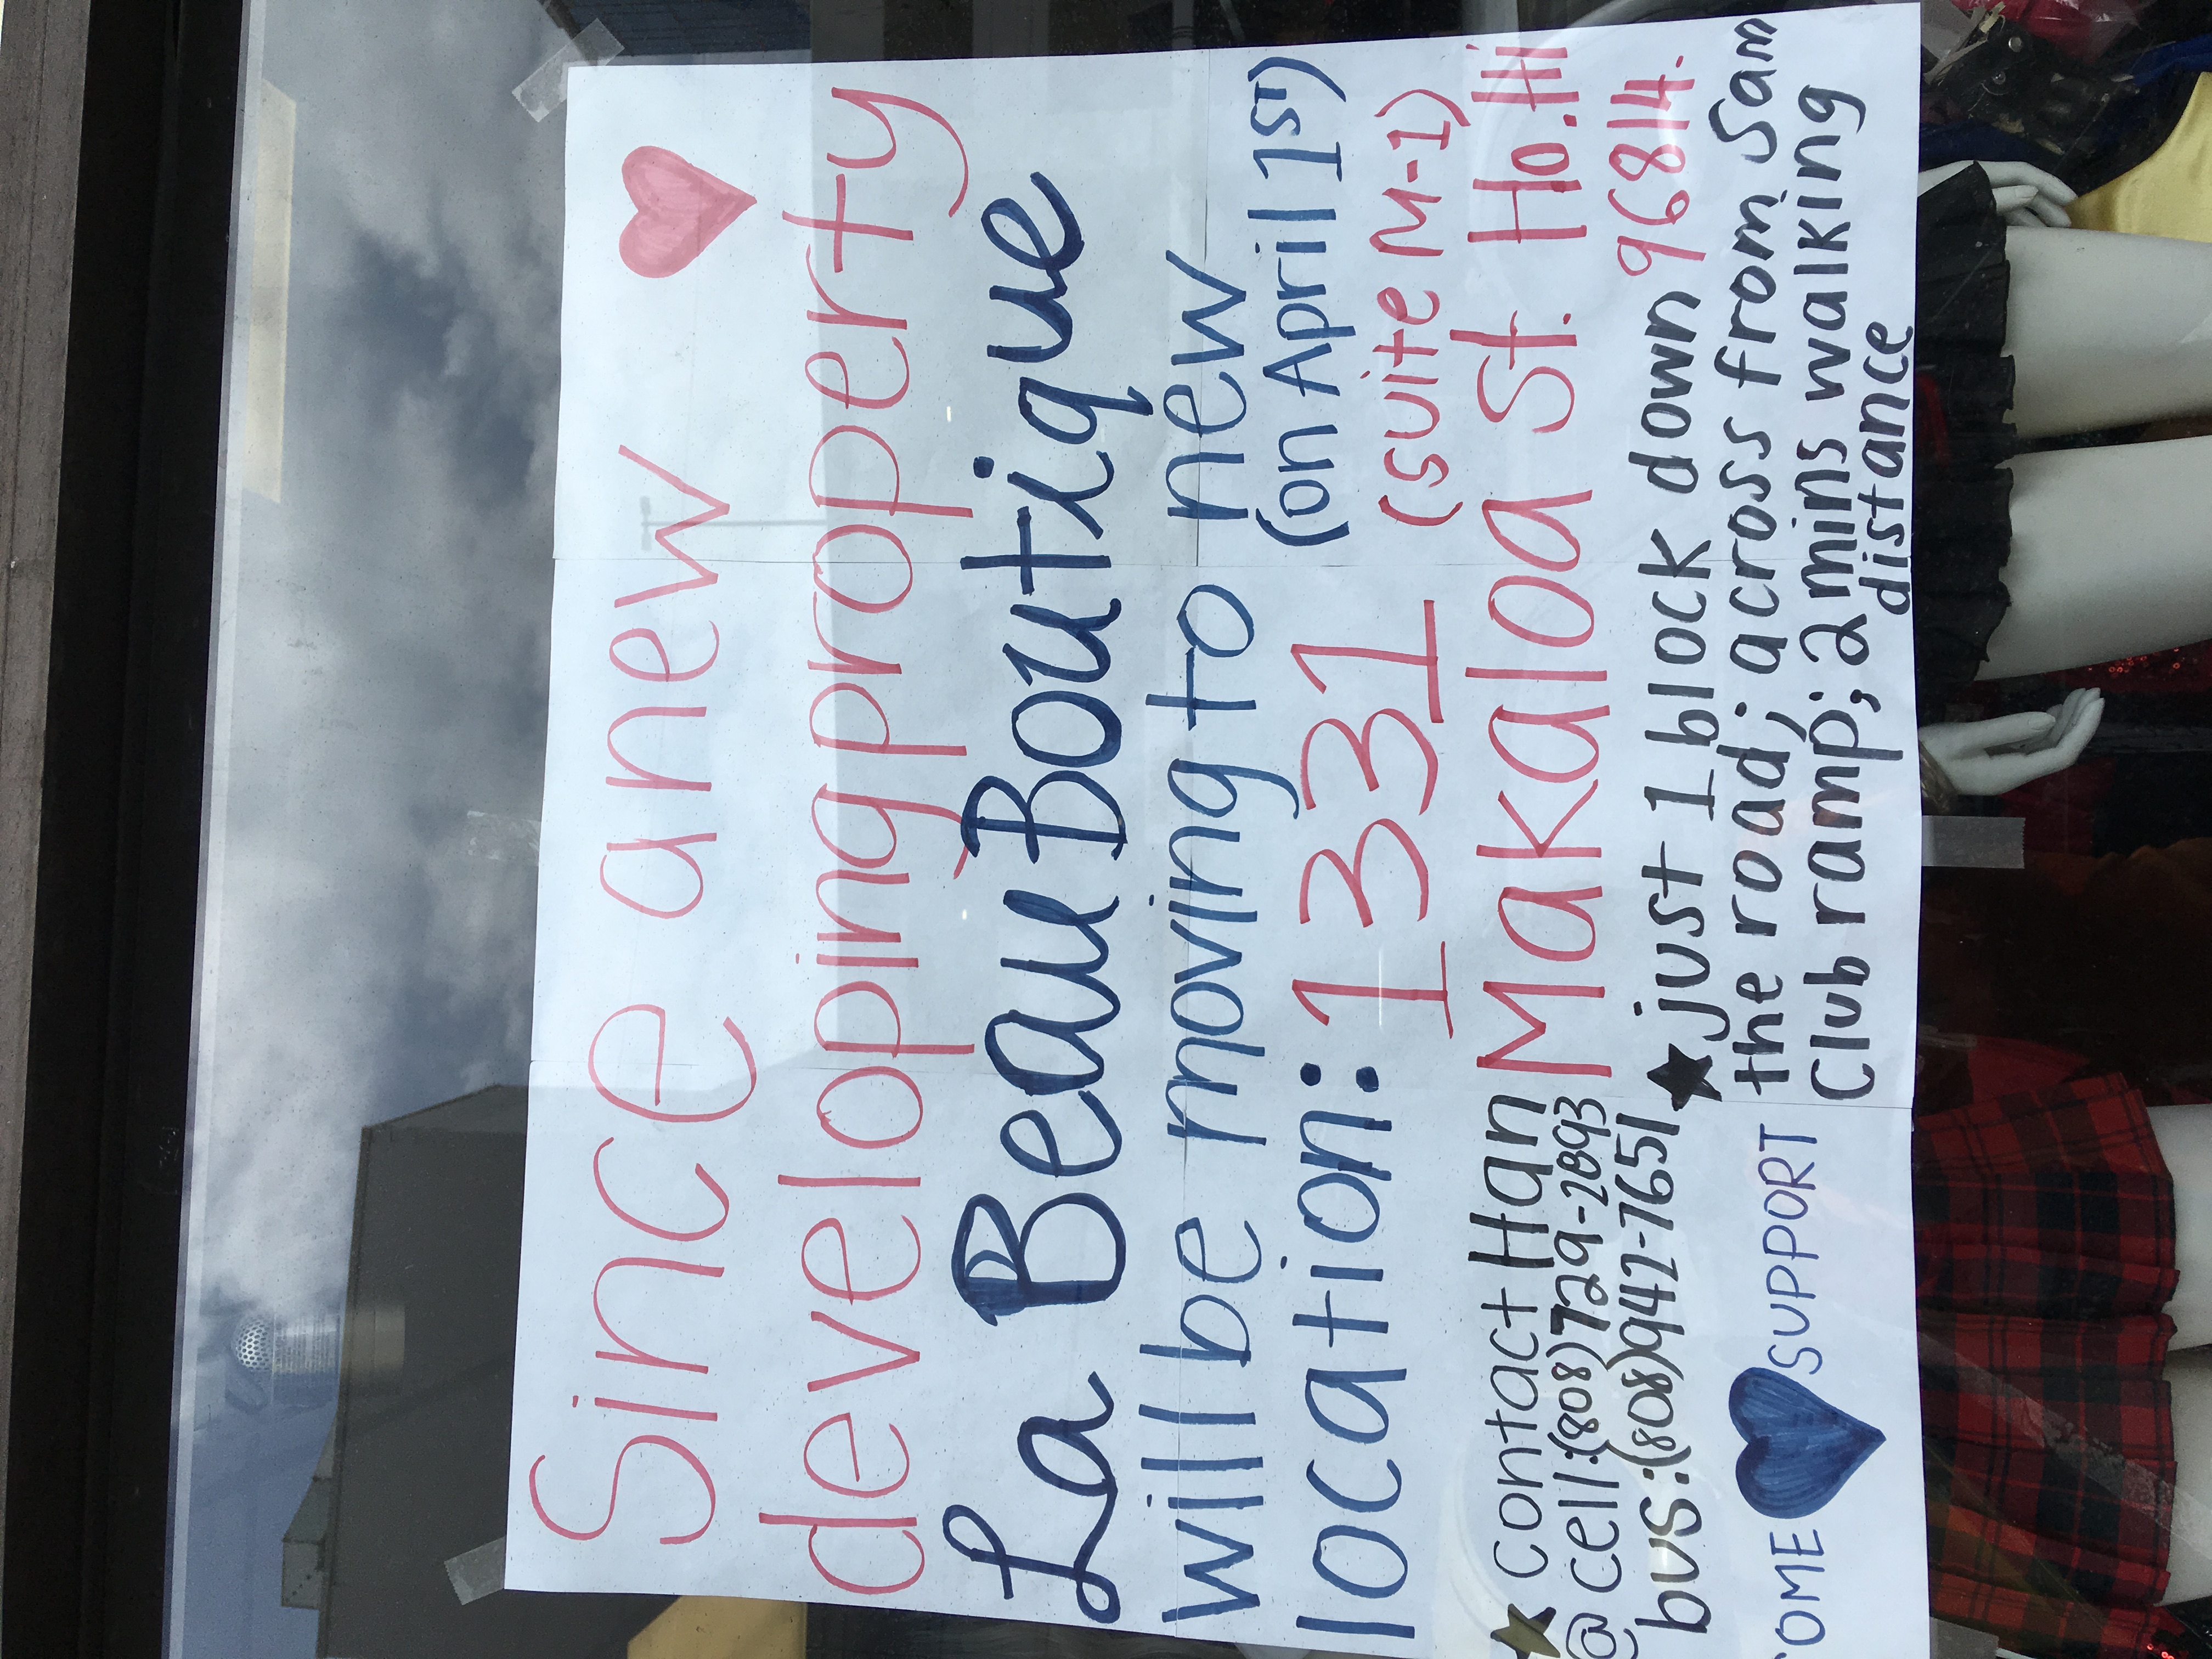 Since a new
developing property
La Beau Boutique
will be moving to new
location: (on April 1ST)
1331 (suite M-1)
Makaloa St. Ho. Hi
96814.
★ contact Han
@ cell:(808)729-2893
bus:(808)942-7651
★ just 1 block down
the road; across from Sam
Club ramp; 2 mins walking
distance
COME SUPPORT